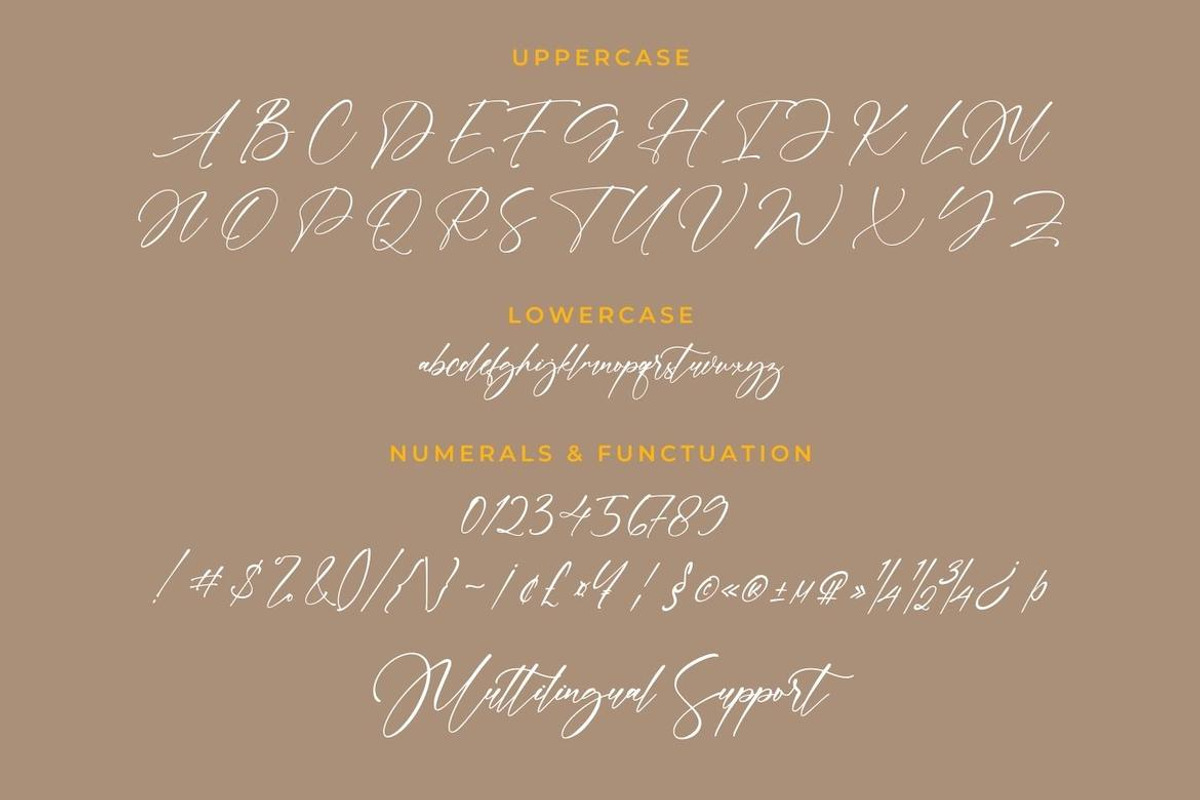 UPPERCASE
ABCDEFGHIJKLM
NOPQRSTUVWXYZ
LOWERCASE
abcdefghijklmnopqrstuvwxyz
NUMERALS & FUNCTUATION
0123456789
!#$%&()/{\}~¡¢£¤¥¦§©«®±µ¶»¼½¾¿þ
Multilingual Support